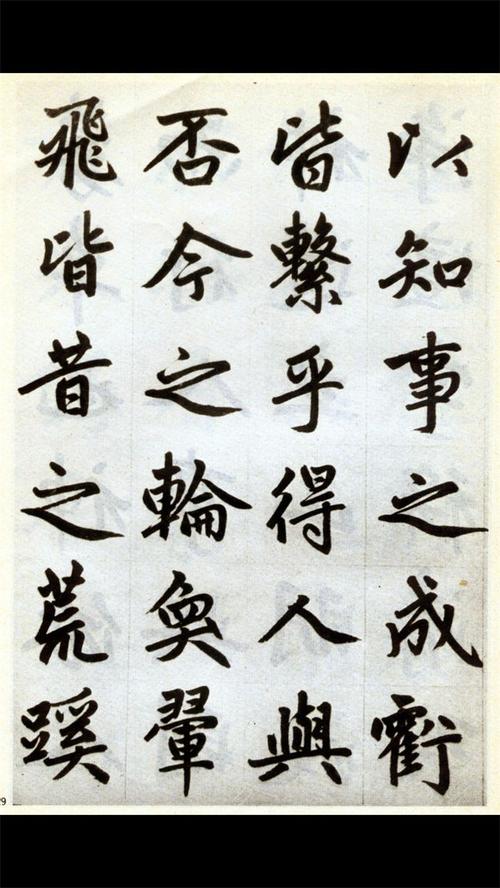 以知事之成虧
皆繫乎得人與
否今之輪奐翬
飛皆昔之荒蹊
9